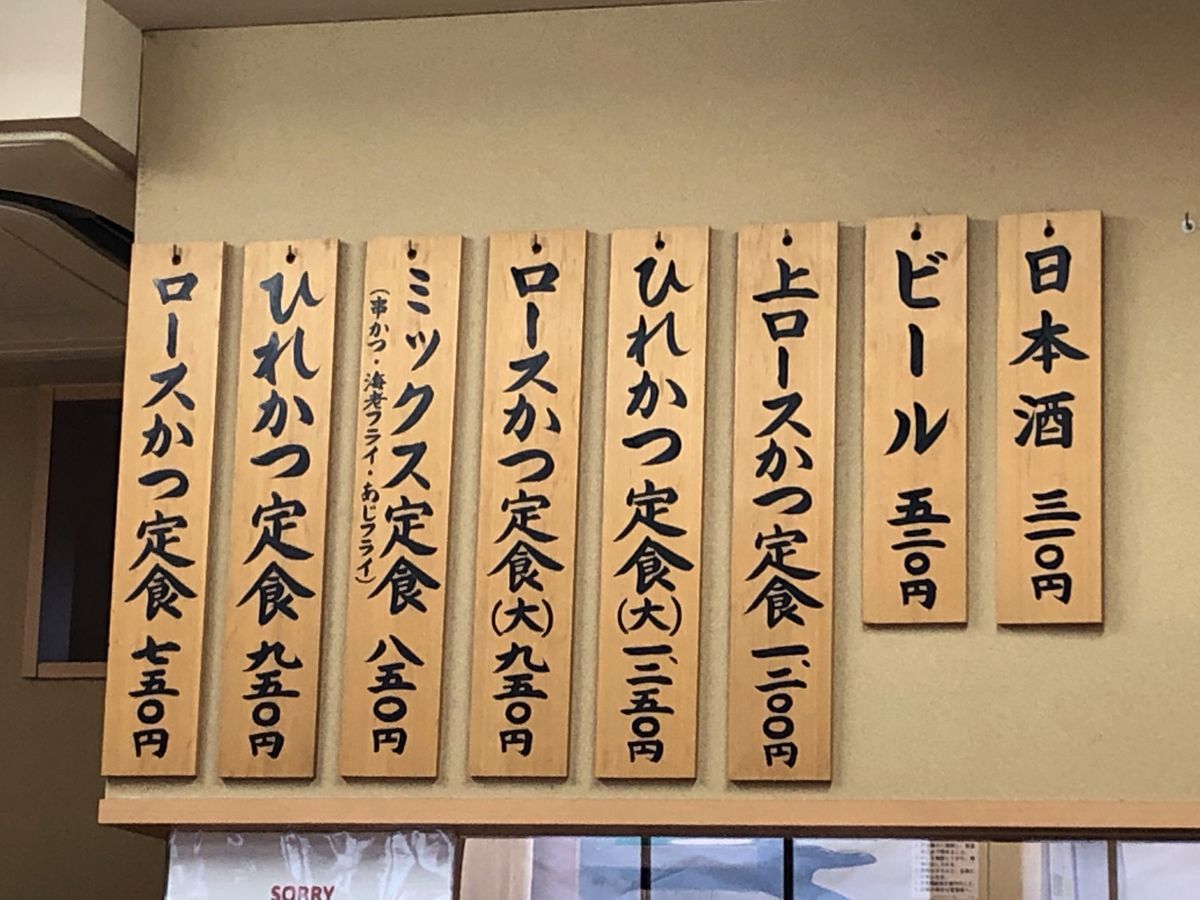 日本酒 三一〇円
ビール 五二〇円
上ロースかつ定食 一、二〇〇円
ひれかつ定食(大) 一、二五〇円
ロースかつ定食(大) 九五〇円
ミックス定食 八五〇円
(串かつ・海老フライ・あじフライ)
ひれかつ定食 九五〇円
ロースかつ定食 七五〇円
SORRY